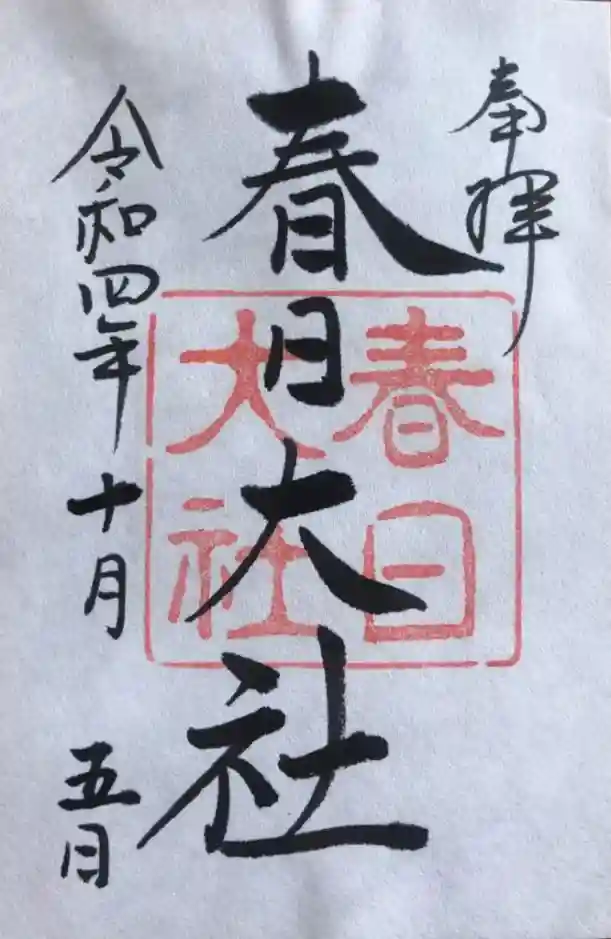 奉拝
春日大社
春日
大社
令和四年十月五日